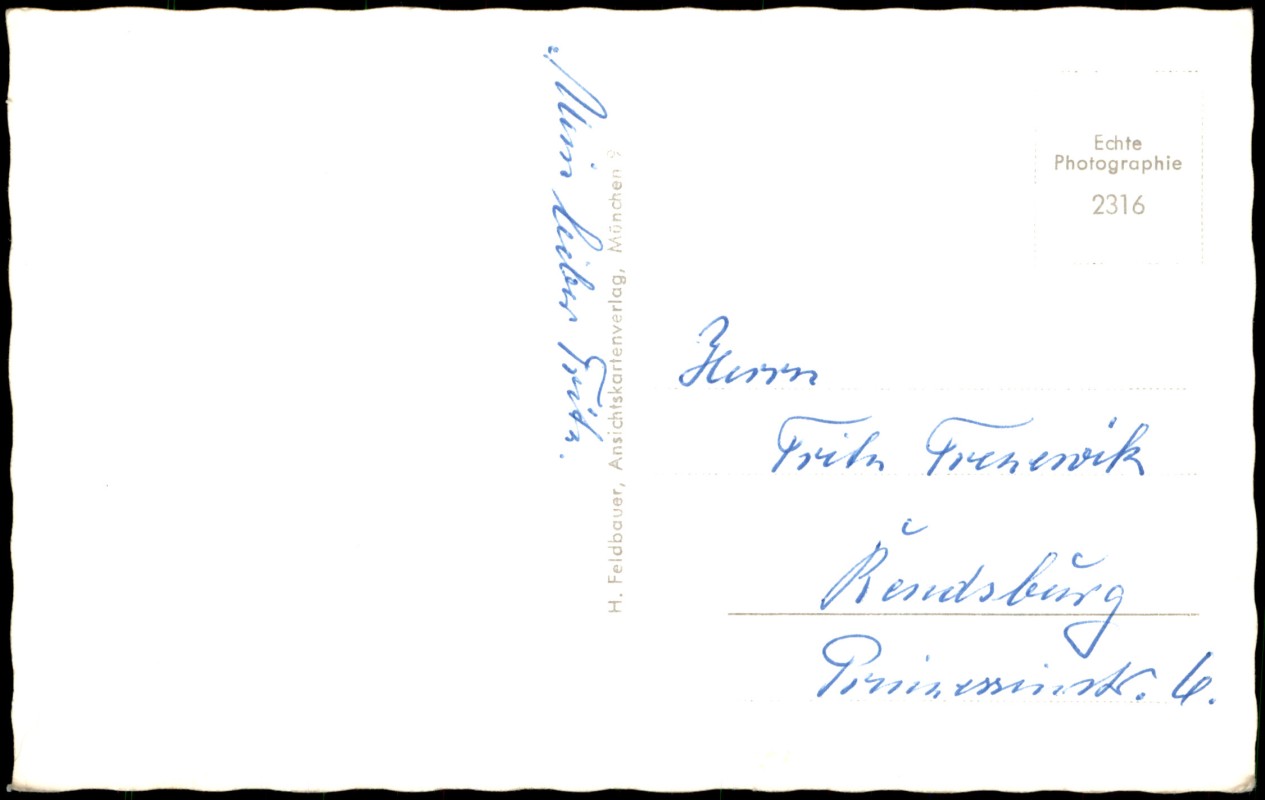 Mein lieber Fritz.
H. Feldbauer, Ansichtskartenverlag, München 9
Echte
Photographie
2316
Herrn
Fritz Trenewik
Rendsburg
Prinzessinstr. 6.